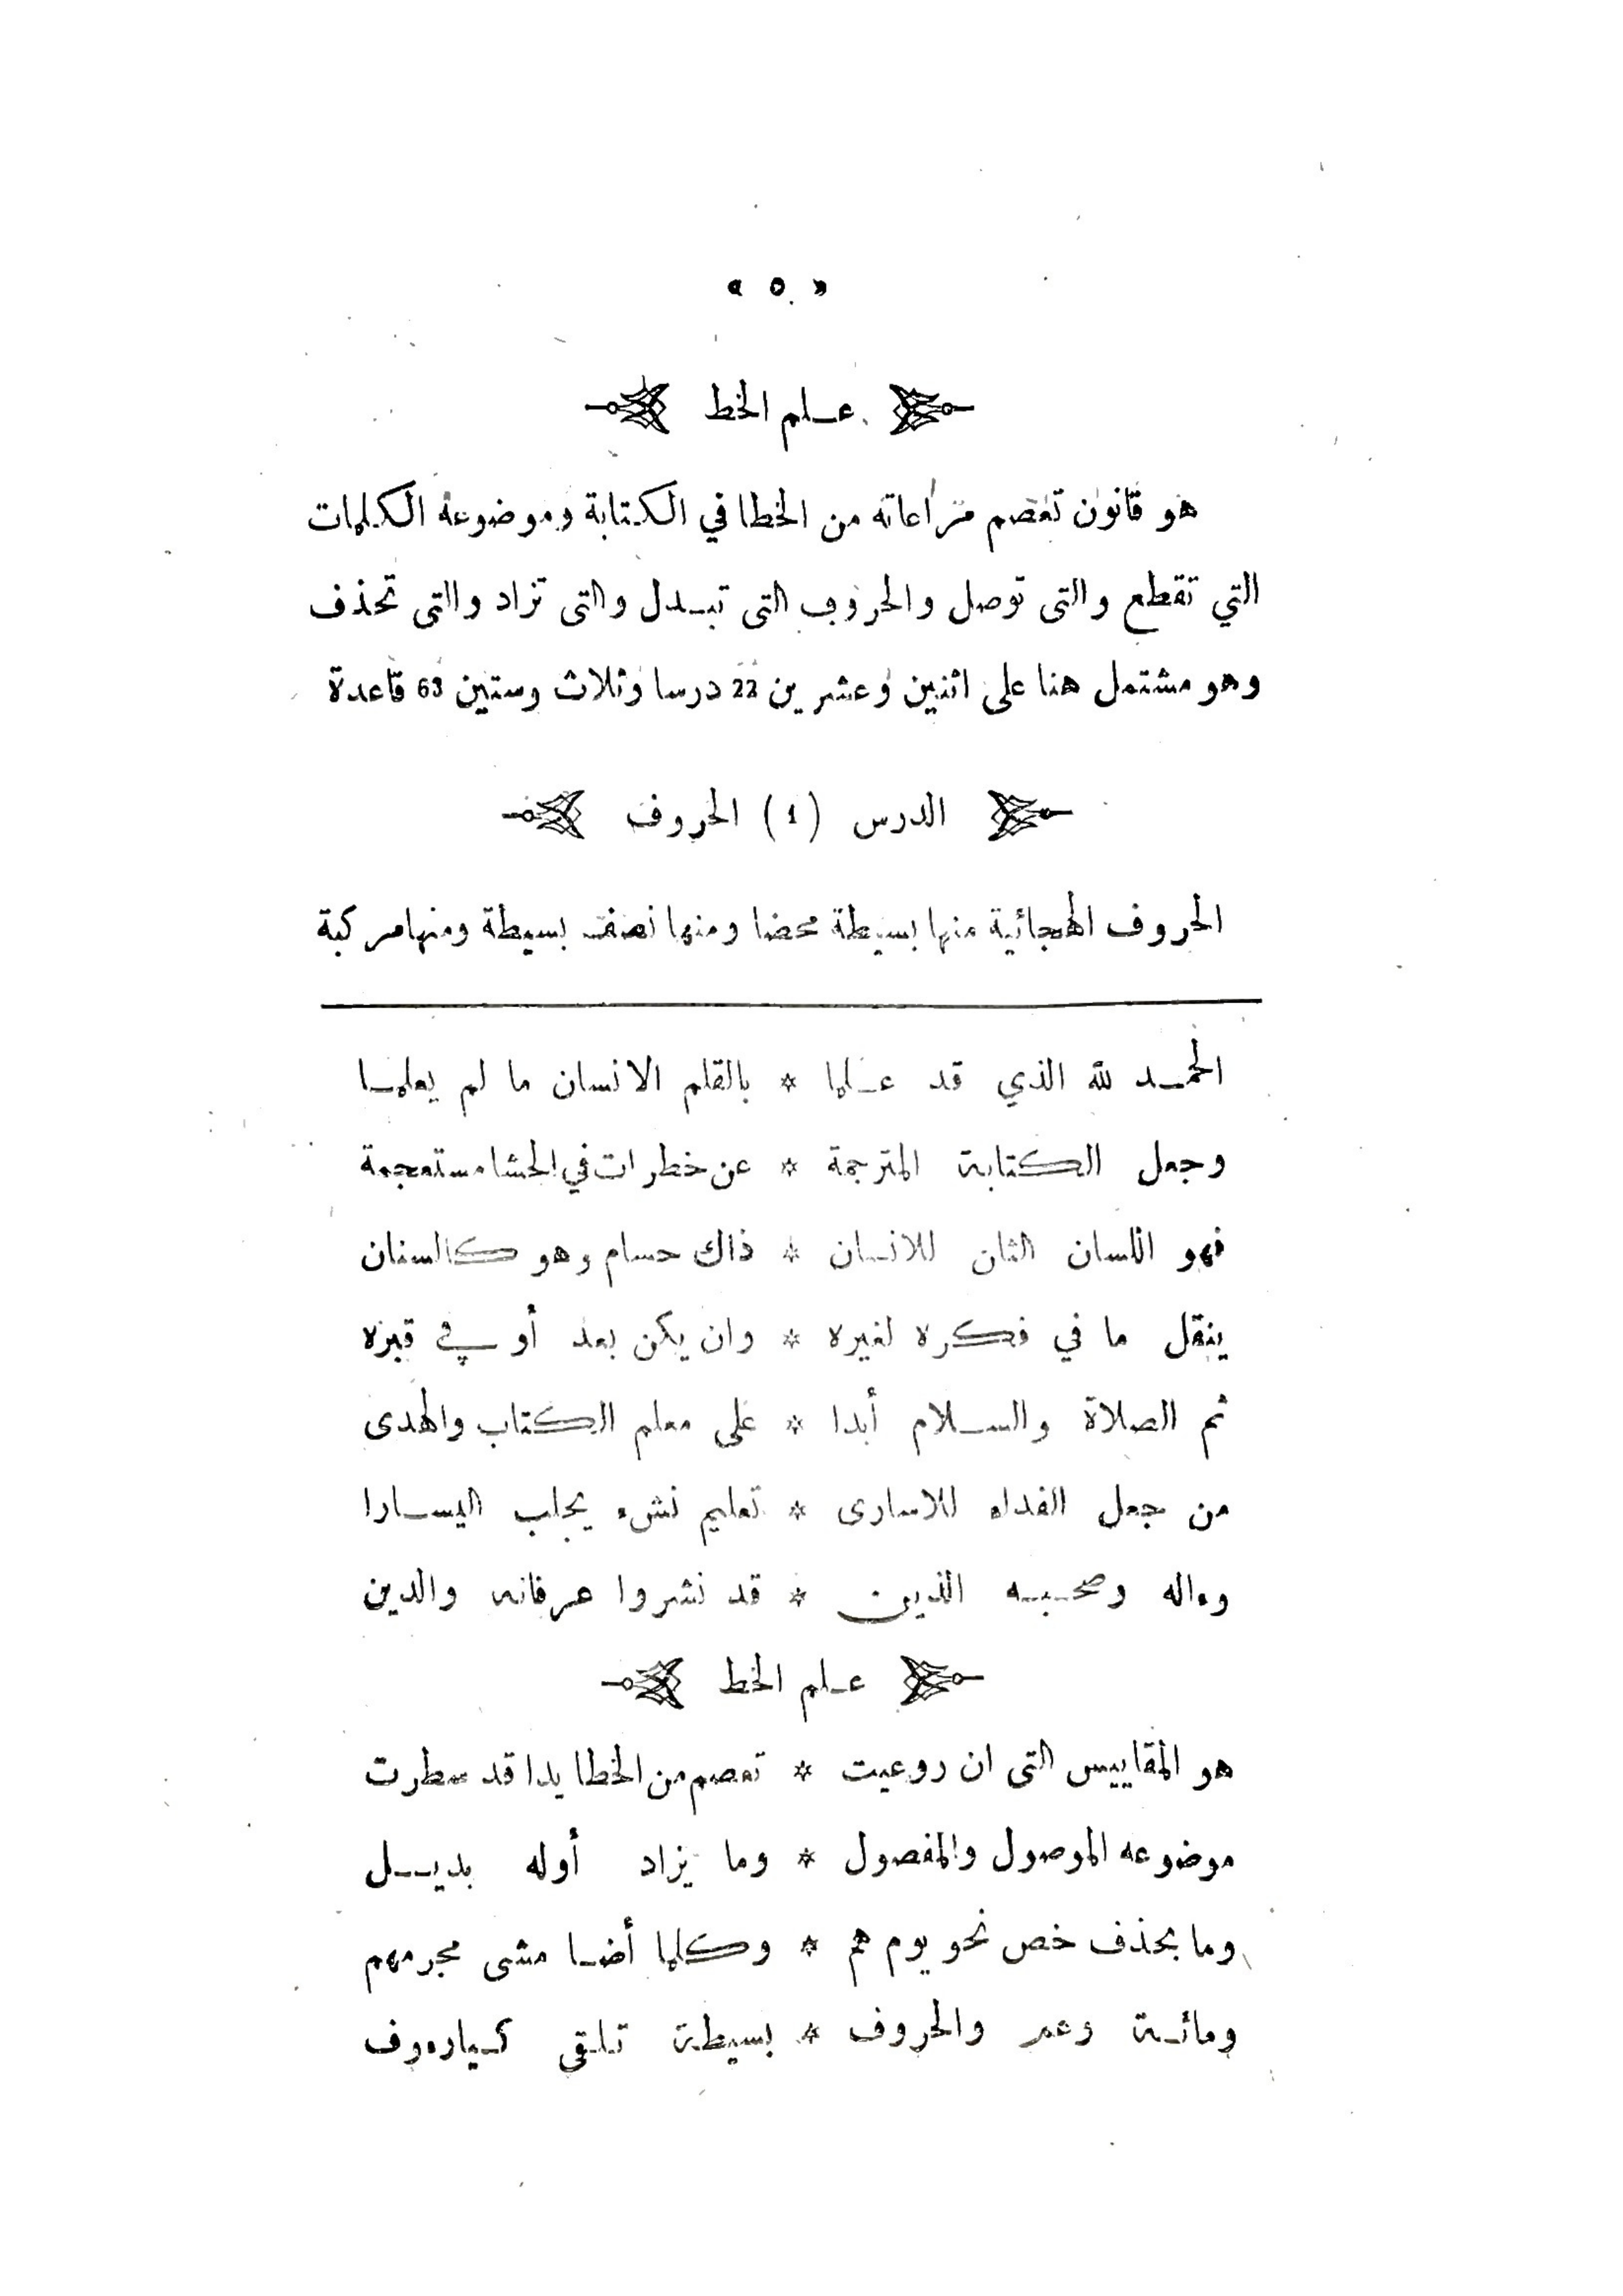 « ٥ »
علم الخط
هو قانون تعصم مراعاته من الخطا في الكتابة وموضوعه الكلمات
التي تقطع والتى توصل والحروف التى تبدل والتى تزاد والتى تحذف
وهو مشتمل هنا على اثنين وعشرين 22 درسا وثلاث وستين 63 قاعدة
الدرس (1) الحروف
الحروف الهجائية منها بسيطة محضا ومنها نصف بسيطة ومنها مركبة
الحمد لله الذي قد علما * بالقلم الانسان ما لم يعلما
وجعل الكتابة المترجمة * عن خطرات في الحشا مستعجمة
فهو اللسان الثان للانسان * ذاك حسام وهو كالسنان
ينقل ما في فكره لغيره * وان يكن بعد أو في قبره
ثم الصلاة والسلام أبدا * على معلم الكتاب والهدى
من جعل الفداء للاسارى * تعليم نشء يجلب اليسارا
وءاله وصحبه الذين * قد نشروا عرفانه والدين
علم الخط
هو المقاييس التى ان روعيت * تعصم من الخطا يدا قد سطرت
موضوعه الموصول والمفصول * وما يزاد أوله بديل
وما بحذف خص نحو يوم هم * وكلما أضا مشى مجرمهم
ومائة وعم والحروف * بسيطة تلقى